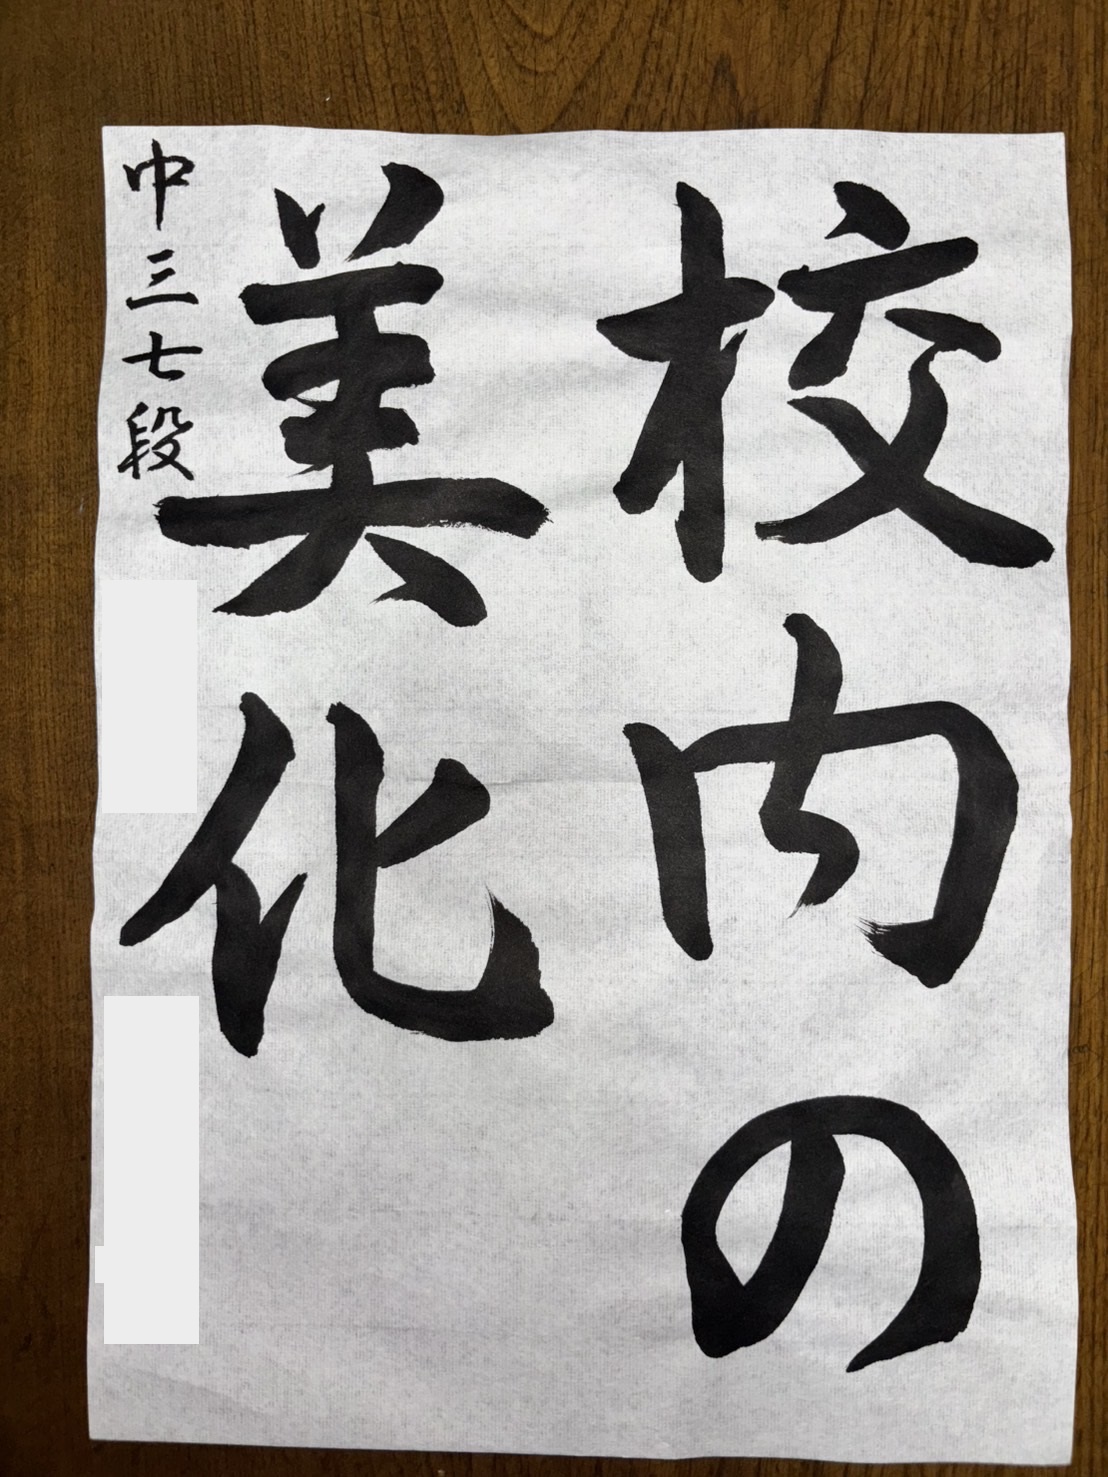 校内の
美化
中三七段